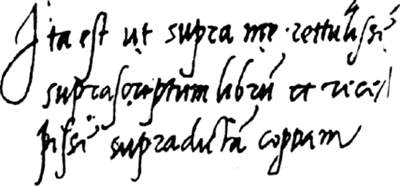 Ita est ut supra me rettulissẽ
suprascriptum librũ et rece
pissẽ supradictã coppam